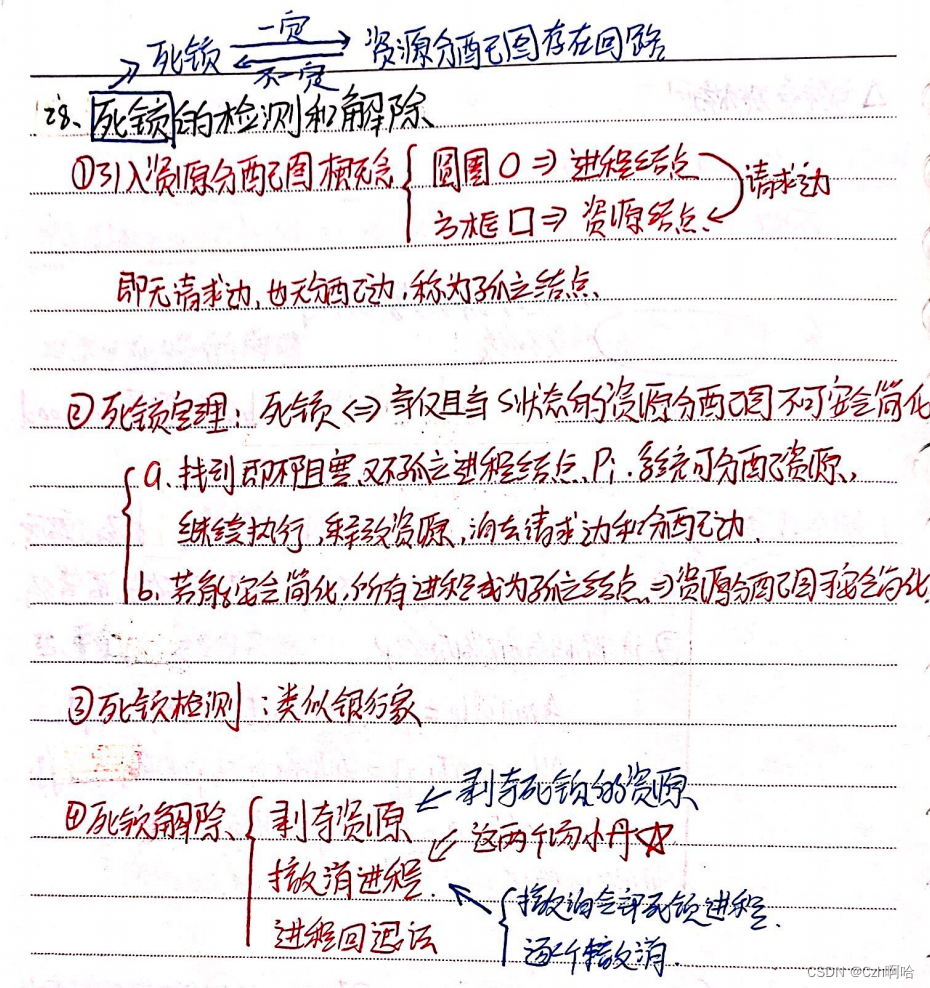 死锁 一定 资源分配图存在回路
不一定
28、死锁的检测和解除、
①引入资源分配图概念 圆圈 ⇒ 进程结点 请求边
方框 ⇒ 资源结点
即无请求边,也无分配边,称为孤立结点、
②死锁定理:死锁 <=> 当仅且当 S状态的资源分配图不可安全简化
a、找到即不阻塞又不孤立进程结点、Pi.系统可分配资源,
继续执行,释放资源,消去请求边和分配边.
b.若能安全简化,所有进程成为孤立结点 ⇒资源分配图可安全简化
③死锁检测:类似银行家
④死锁解除、 剥夺资源 剥夺死锁的资源、
撤消进程. 这两个
进程回退法 撤消全部死锁进程.
逐个撤消.
CSDN @Czh啊哈